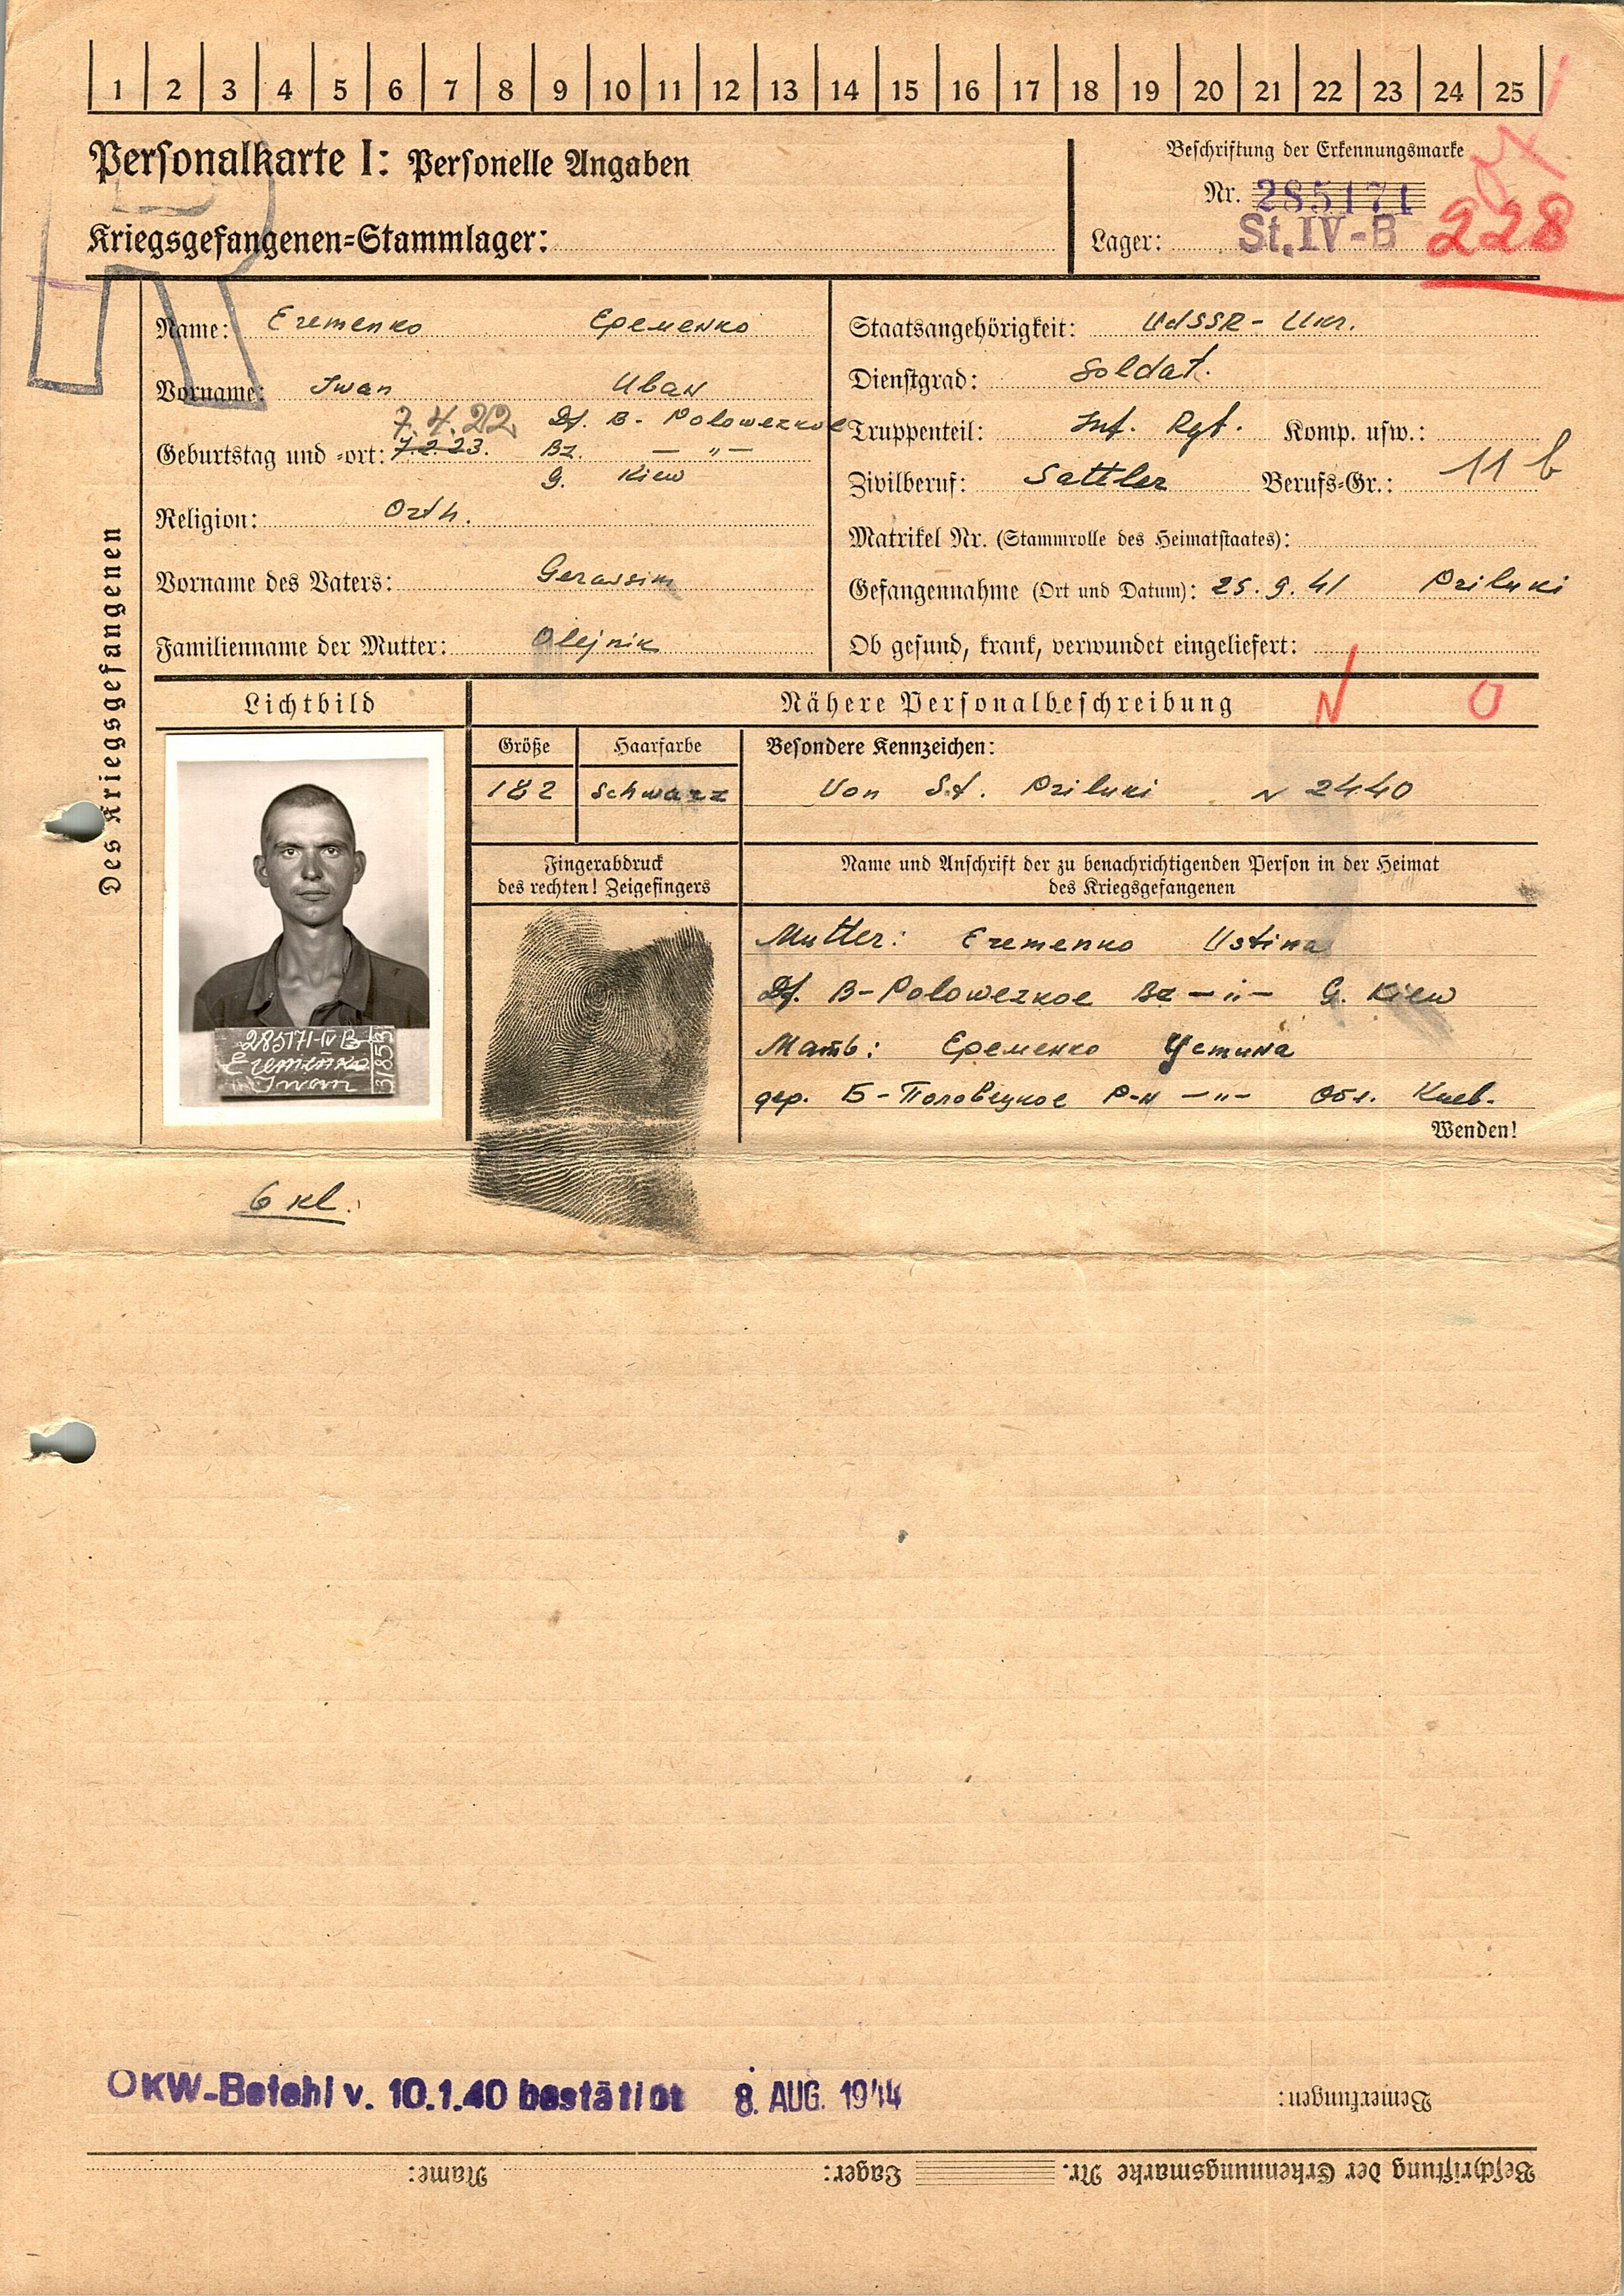 1 2 3 4 5 6 7 8 9 10 11 12 13 14 15 16 17 18 19 20 21 22 23 24 25
Personalkarte I: Personelle Angaben
Kriegsgefangenen-Stammlager:
Beschriftung der Erkennungsmarke
Nr. 285171
Lager: St. IV-B
228
Des Kriegsgefangenen
Name: Eremenko Еременко
Vorname: Iwan Иван
7.4.22 Df. B- Polowezkoe
Geburtstag und -ort: 7.2.23. Bz. — „ —
G. Kiew
Religion: Orth.
Vorname des Vaters: Gerassim
Familienname der Mutter: Olejnik
Staatsangehörigkeit: UdSSR- Ukr.
Dienstgrad: Soldat.
Truppenteil: Inf. Rgt. Komp. usw.:
Zivilberuf: Sattler Berufs-Gr.: 11 b
Matrikel Nr. (Stammrolle des Heimatstaates):
Gefangennahme (Ort und Datum): 25.9.41 Priluki
Ob gesund, krank, verwundet eingeliefert:
Lichtbild
Nähere Personalbeschreibung
N O
Größe Haarfarbe Besondere Kennzeichen:
182 schwarz Von St. Priluki N 2440
Fingerabdruck
des rechten! Zeigefingers
Name und Anschrift der zu benachrichtigenden Person in der Heimat
des Kriegsgefangenen
Mutter: Eremenko Ustina
Df. B-Polowezkoe Bz — „ — G. Kiew
Мать: Еременко Устина
дер. Б-Половецкое Р-н — „ — Обл. Киев.
Wenden!
285171-IV B
Eremenko
Iwan
31853
6 kl.
OKW-Befehl v. 10.1.40 bestätigt 8. AUG. 1944
Bemerkungen:
Beschriftung der Erkennungsmarke Nr. Lager: Name: